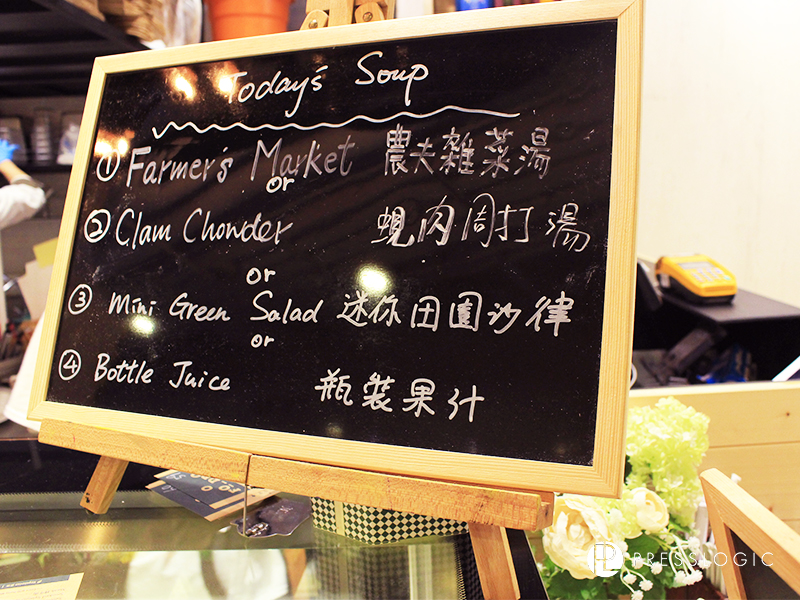 Today's Soup
① Farmer's Market 農夫雜菜湯
or
② Clam Chowder 蜆肉周打湯
or
③ Mini Green Salad 迷你田園沙律
or
④ Bottle Juice 瓶裝果汁
PRESSLOGIC